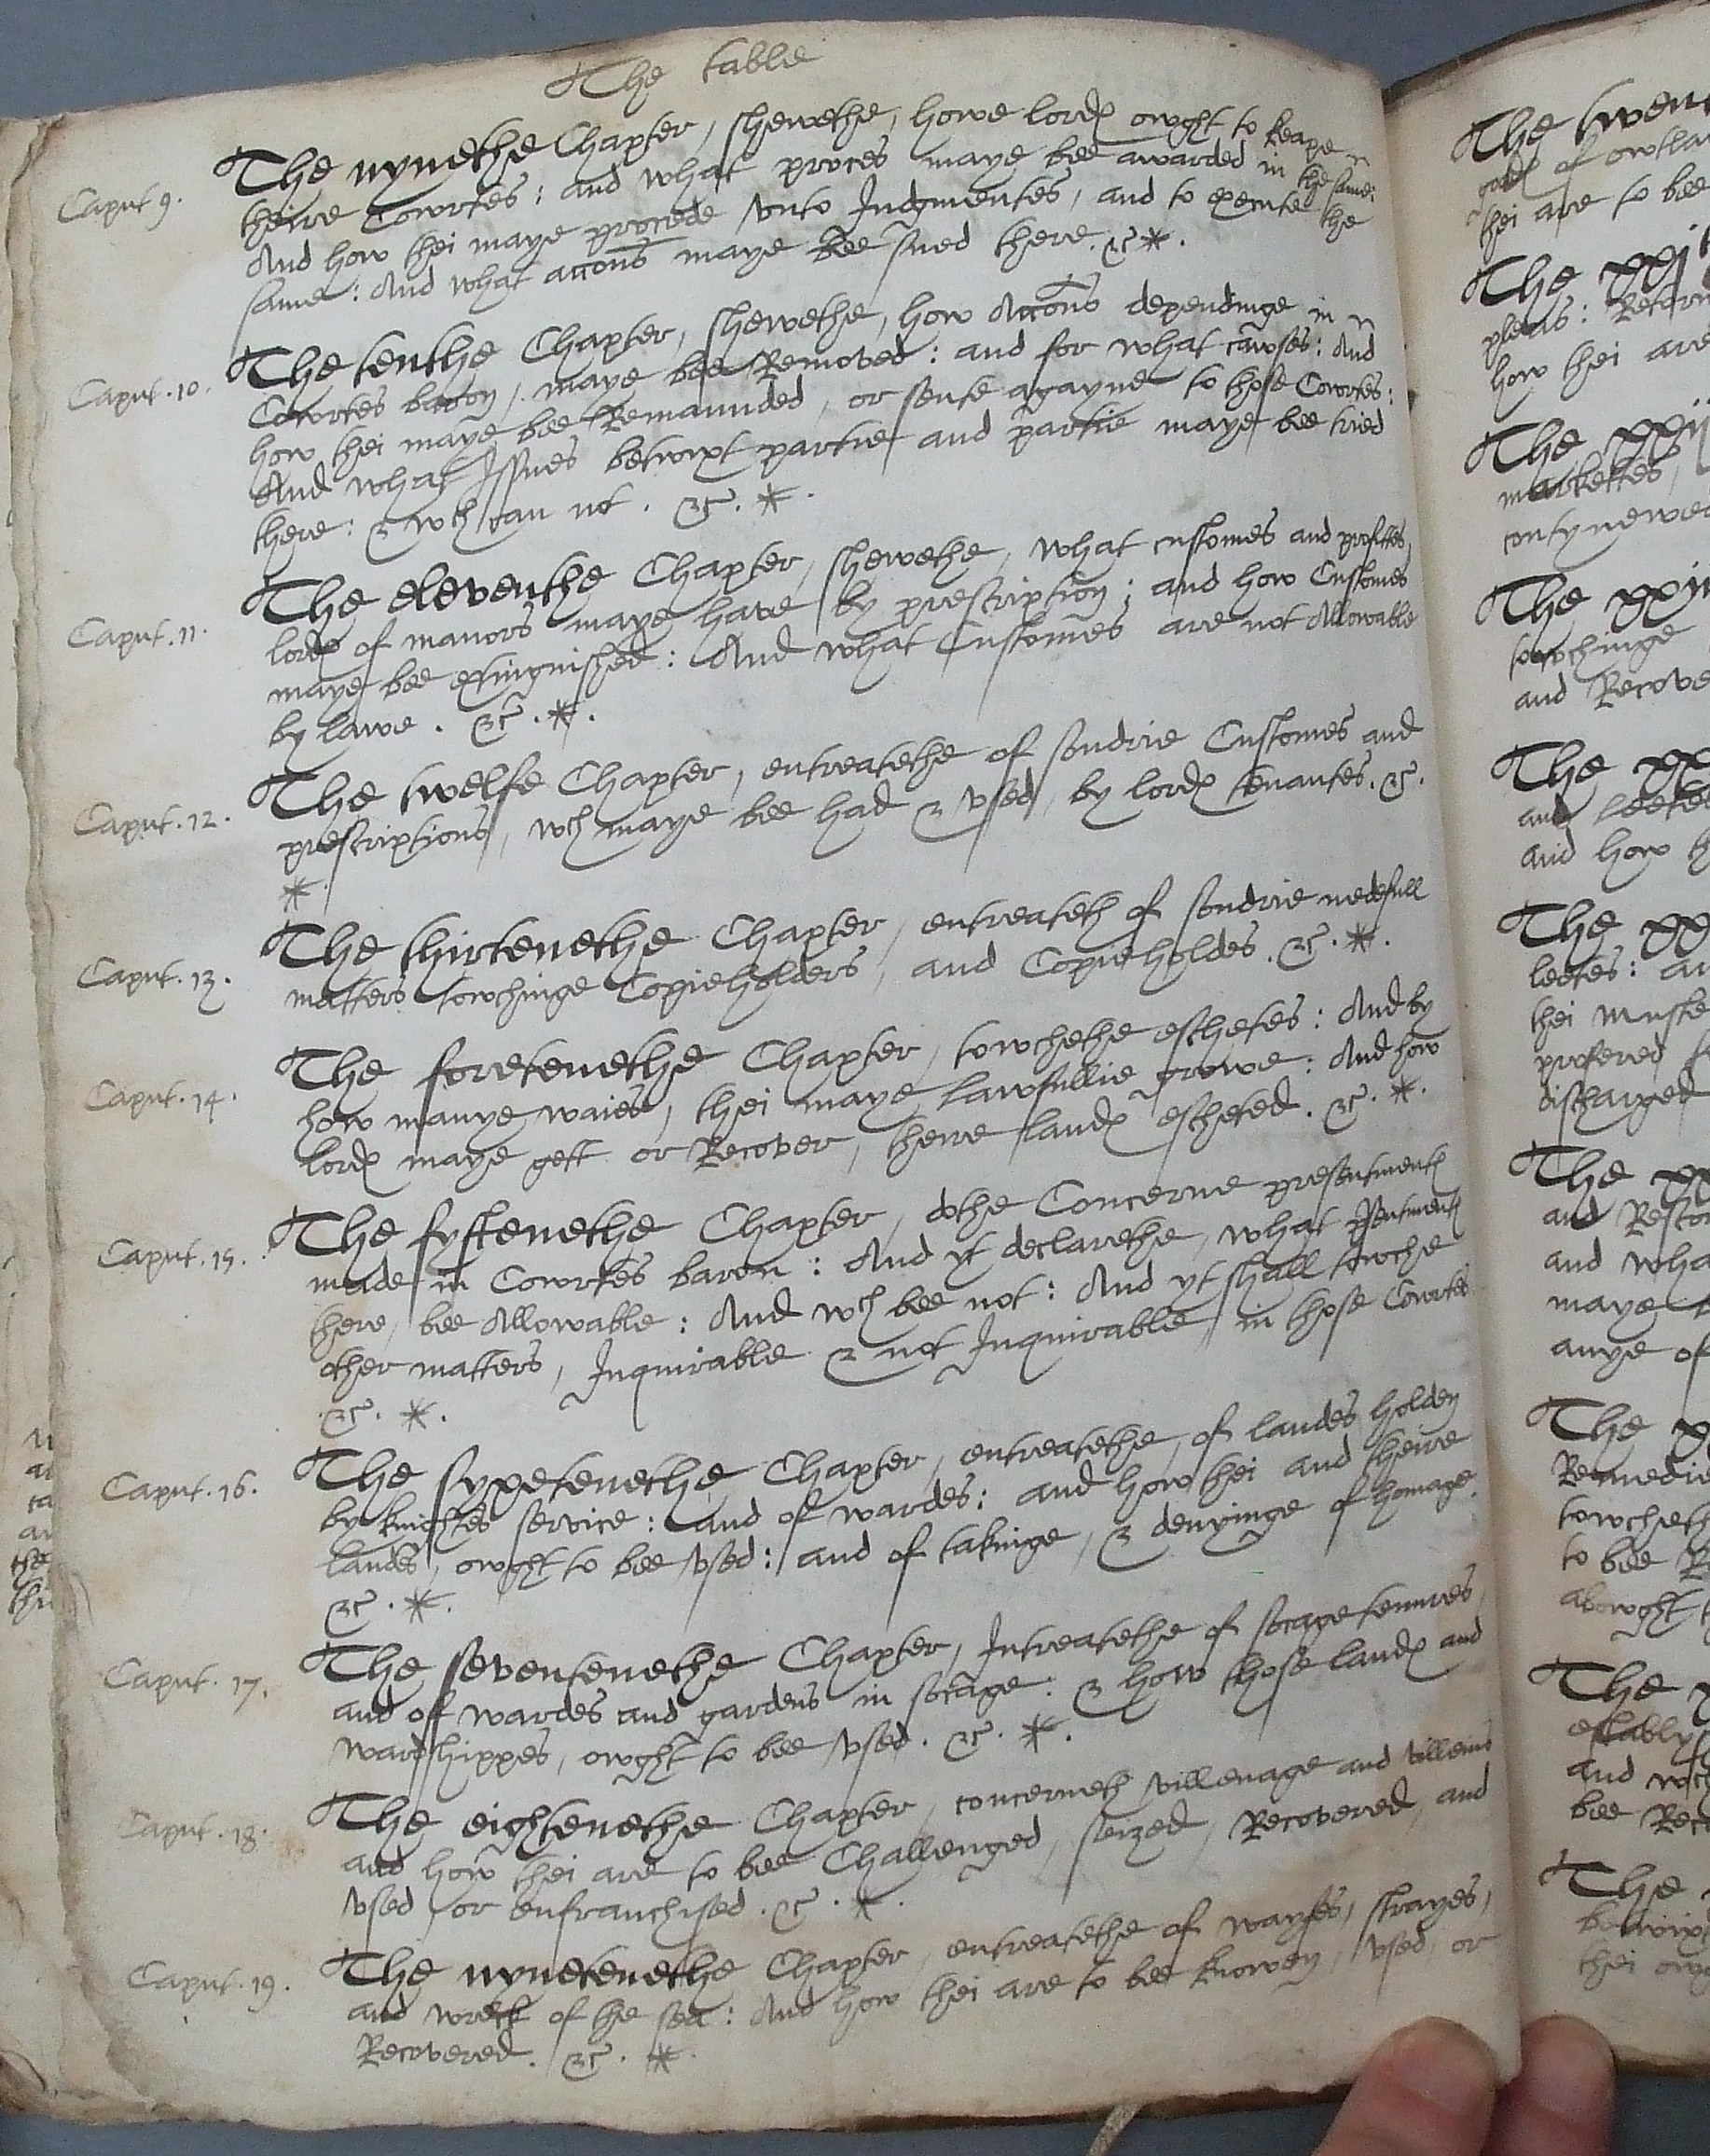 The table
Caput 9. The nynethe Chapter, shewethe, howe lordꝭ owght to keape
theire Cowrtes: and what proces maye bee awarded in the same:
And how thei maye procede vnto Judgmentes, and to execute the
same: And what accons maye bee sued there. &c *.
Caput. 10. The tenthe Chapter, shewethe, how Accons dependinge in
Cowrtes baron, maye bee Removed: and for what cawses: And
how thei maye bee Remaunded, or sente agayne to those Cowrtes:
And what Issues betwixt partie and partie maye bee tried
there: & wch can not. &c. *.
Caput. 11. The eleventhe Chapter, shewethe, what customes and profittes,
lordꝭ of manors maye have by prescription; and how Customes
maye bee extinguished: And what Customes are not Allowable
by lawe. &c. *.
Caput. 12. The twelfe Chapter, entreatethe of sondrie Customes and
prescriptions, wch maye bee had & vsed, by lordꝭ tenantes. &c.
*.
Caput. 13. The thirtenethe Chapter, entreateth of sondrie nedefull
matters towchinge Copieholders, and Copieholdes. &c. *.
Caput. 14. The foretenethe Chapter, towchethe eschetes: And by
how manye waies, thei maye lawfullie growe: And how
lordꝭ maye gett or Recover, theire landꝭ escheted. &c. *.
Caput. 15. The fyftenethe Chapter, dothe Concerne presentmentꝭ
made in Cowrtes baron: And yt declarethe, what psentmentꝭ
there, bee Allowable: And wch bee not: And yt shall towche
other matters, Inquirable & not Inquirable, in those Cowrtes
&c. *.
Caput. 16. The syxetenethe Chapter, entreatethe, of landes holden
by knightes service: and of wardes: and how thei and theire
landes, owght to bee vsed: and of takinge, & denyinge of homage.
&c. *.
Caput. 17. The seventenethe Chapter, Intreatethe of socage tenures,
and of wardes and gardens in socage: & how those landꝭ and
wardshippes, owght to bee vsed. &c. *.
Caput. 18. The eightenethe Chapter, concerneth villenage and villeins
and how thei are to bee Challenged, seized, Recovered, and
vsed or enfranchised. &c. *.
Caput. 19. The nynetenethe Chapter, entreatethe of wayfes, strayes,
and wreck of the sea: And how thei are to bee knowen, vsed, or
Recovered. &c. *.
The twen
of owtla
thei are to bee
The xxj
pleas: Retorn
how thei are
The xxij
markettes,
contynewed
The xxiij
towchinge
and Recove
The xx
and leetes
and how th
The xx
leetes: an
thei muste
profered f
discharged
The xx
and Resto
and wha
maye
anye of
The x
Remedie
towcheth
to bee R
abowght
The
establys
and wch
bee Reco
The
betwixt
thei owg